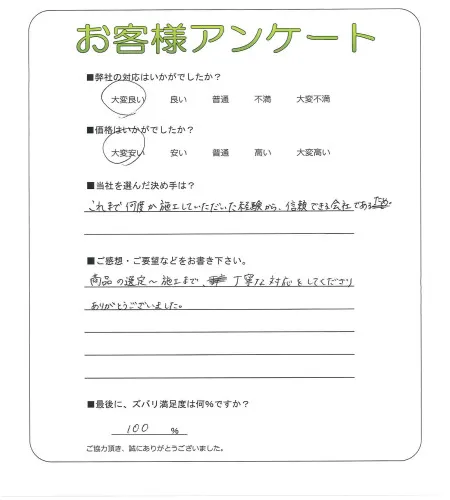 お客様アンケート
■弊社の対応はいかがでしたか？
大変良い　良い　普通　不満　大変不満
■価格はいかがでしたか？
大変安い　安い　普通　高い　大変高い
■当社を選んだ決め手は？
これまで何度か施工していただいた経験から、信頼できる会社であるため
■ご感想・ご要望などをお書き下さい。
商品の選定～施工まで、丁寧な対応をしてくださり
ありがとうございました。
■最後に、ズバリ満足度は何％ですか？
100 ％
ご協力頂き、誠にありがとうございました。